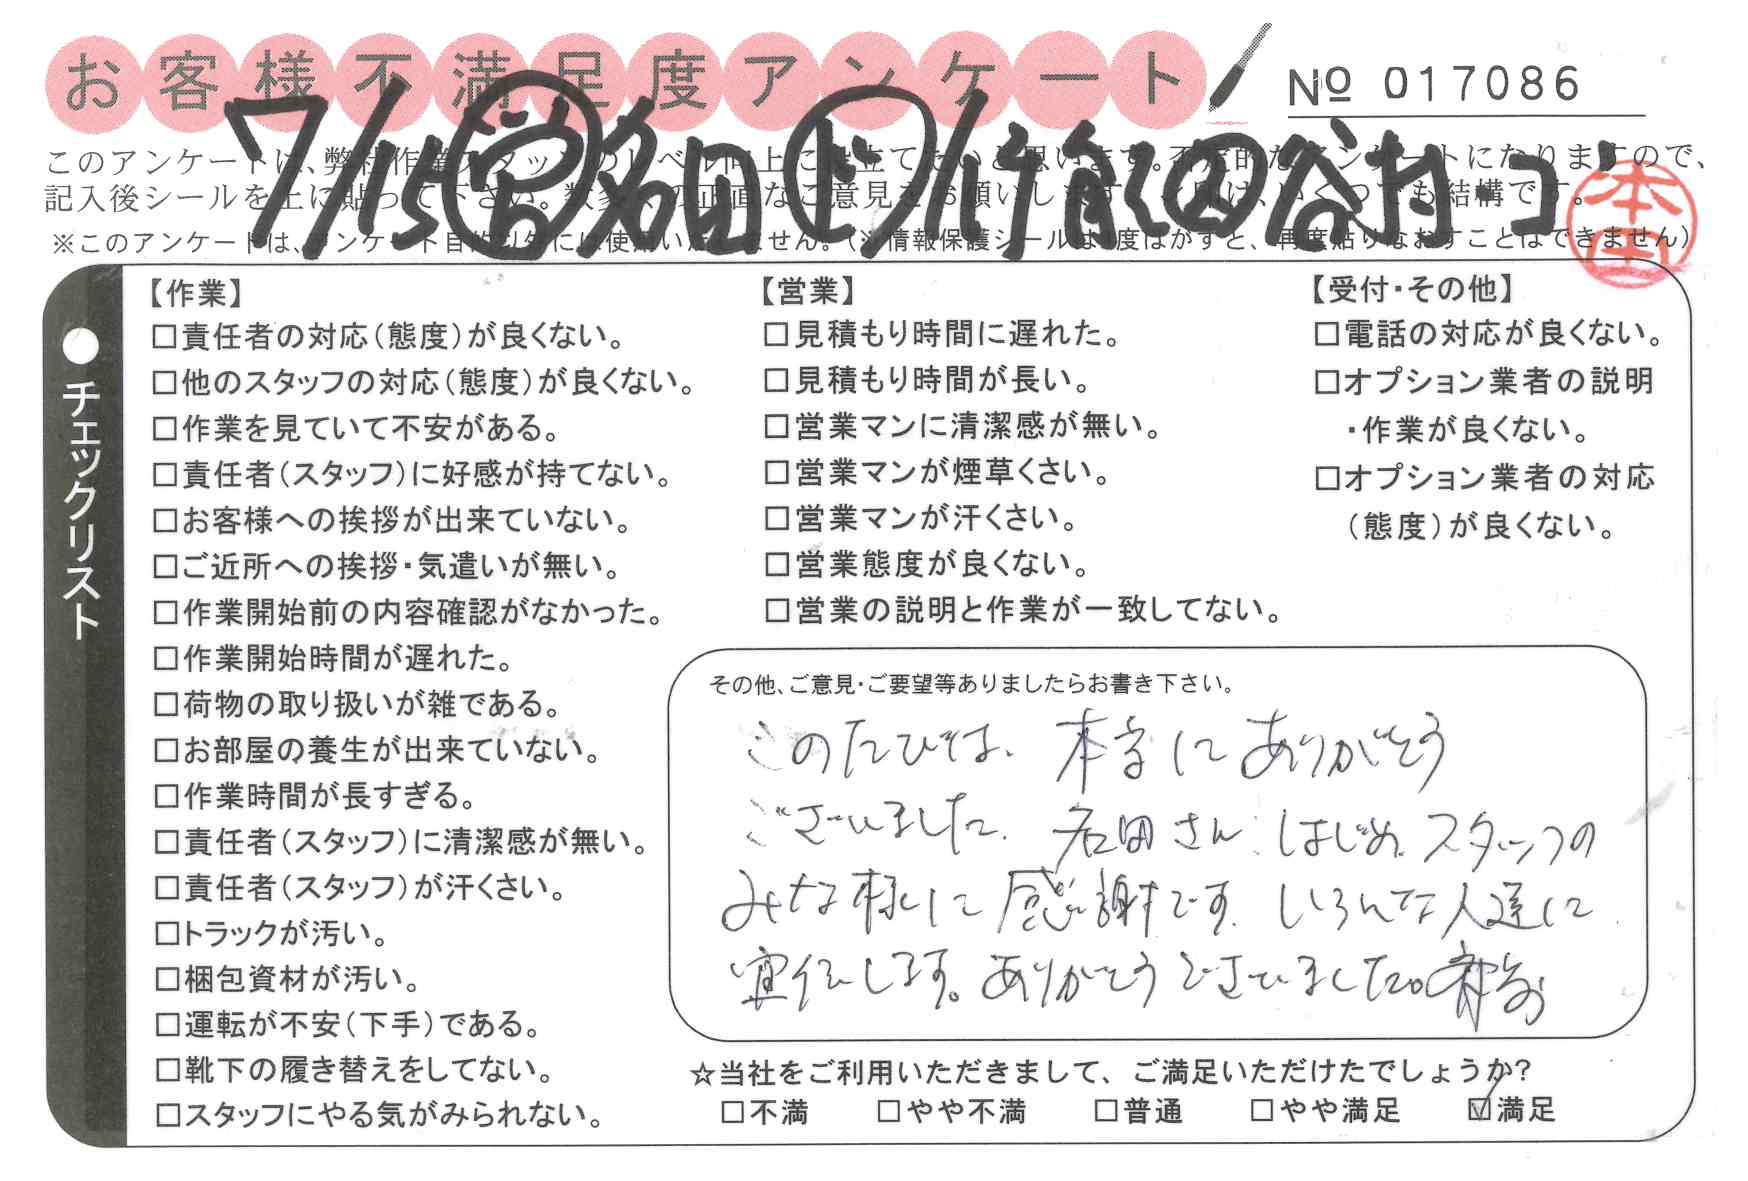 お客様不満足度アンケート
№ 017086
このアンケートは、弊社作業スタッフのレベル向上に役立てたいと思います。不定的なアンケートになりますので、
記入後シールを上に貼って下さい。数多くの正直なご意見をお願いします。 いくつでも結構です。
※このアンケートは、アンケート目的以外には使用いたしません。(※情報保護シールは1度はがすと、再度貼りなおすことはできません)
7/15 名田 ド 谷村 コ
本田
●チェックリスト
【作業】
□責任者の対応(態度)が良くない。
□他のスタッフの対応(態度)が良くない。
□作業を見ていて不安がある。
□責任者(スタッフ)に好感が持てない。
□お客様への挨拶が出来ていない。
□ご近所への挨拶・気遣いが無い。
□作業開始前の内容確認がなかった。
□作業開始時間が遅れた。
□荷物の取り扱いが雑である。
□お部屋の養生が出来ていない。
□作業時間が長すぎる。
□責任者(スタッフ)に清潔感が無い。
□責任者(スタッフ)が汗くさい。
□トラックが汚い。
□梱包資材が汚い。
□運転が不安(下手)である。
□靴下の履き替えをしてない。
□スタッフにやる気がみられない。
【営業】
□見積もり時間に遅れた。
□見積もり時間が長い。
□営業マンに清潔感が無い。
□営業マンが煙草くさい。
□営業マンが汗くさい。
□営業態度が良くない。
□営業の説明と作業が一致してない。
【受付・その他】
□電話の対応が良くない。
□オプション業者の説明
・作業が良くない。
□オプション業者の対応
(態度)が良くない。
その他、ご意見・ご要望等ありましたらお書き下さい。
このたびは、本当にありがとう
ございました。名田さんはじめ、スタッフの
みな様に感謝です。いろんな人達に
宣伝します。ありがとうございました。
☆当社をご利用いただきまして、ご満足いただけたでしょうか?
□不満 □やや不満 □普通 □やや満足 ☑満足